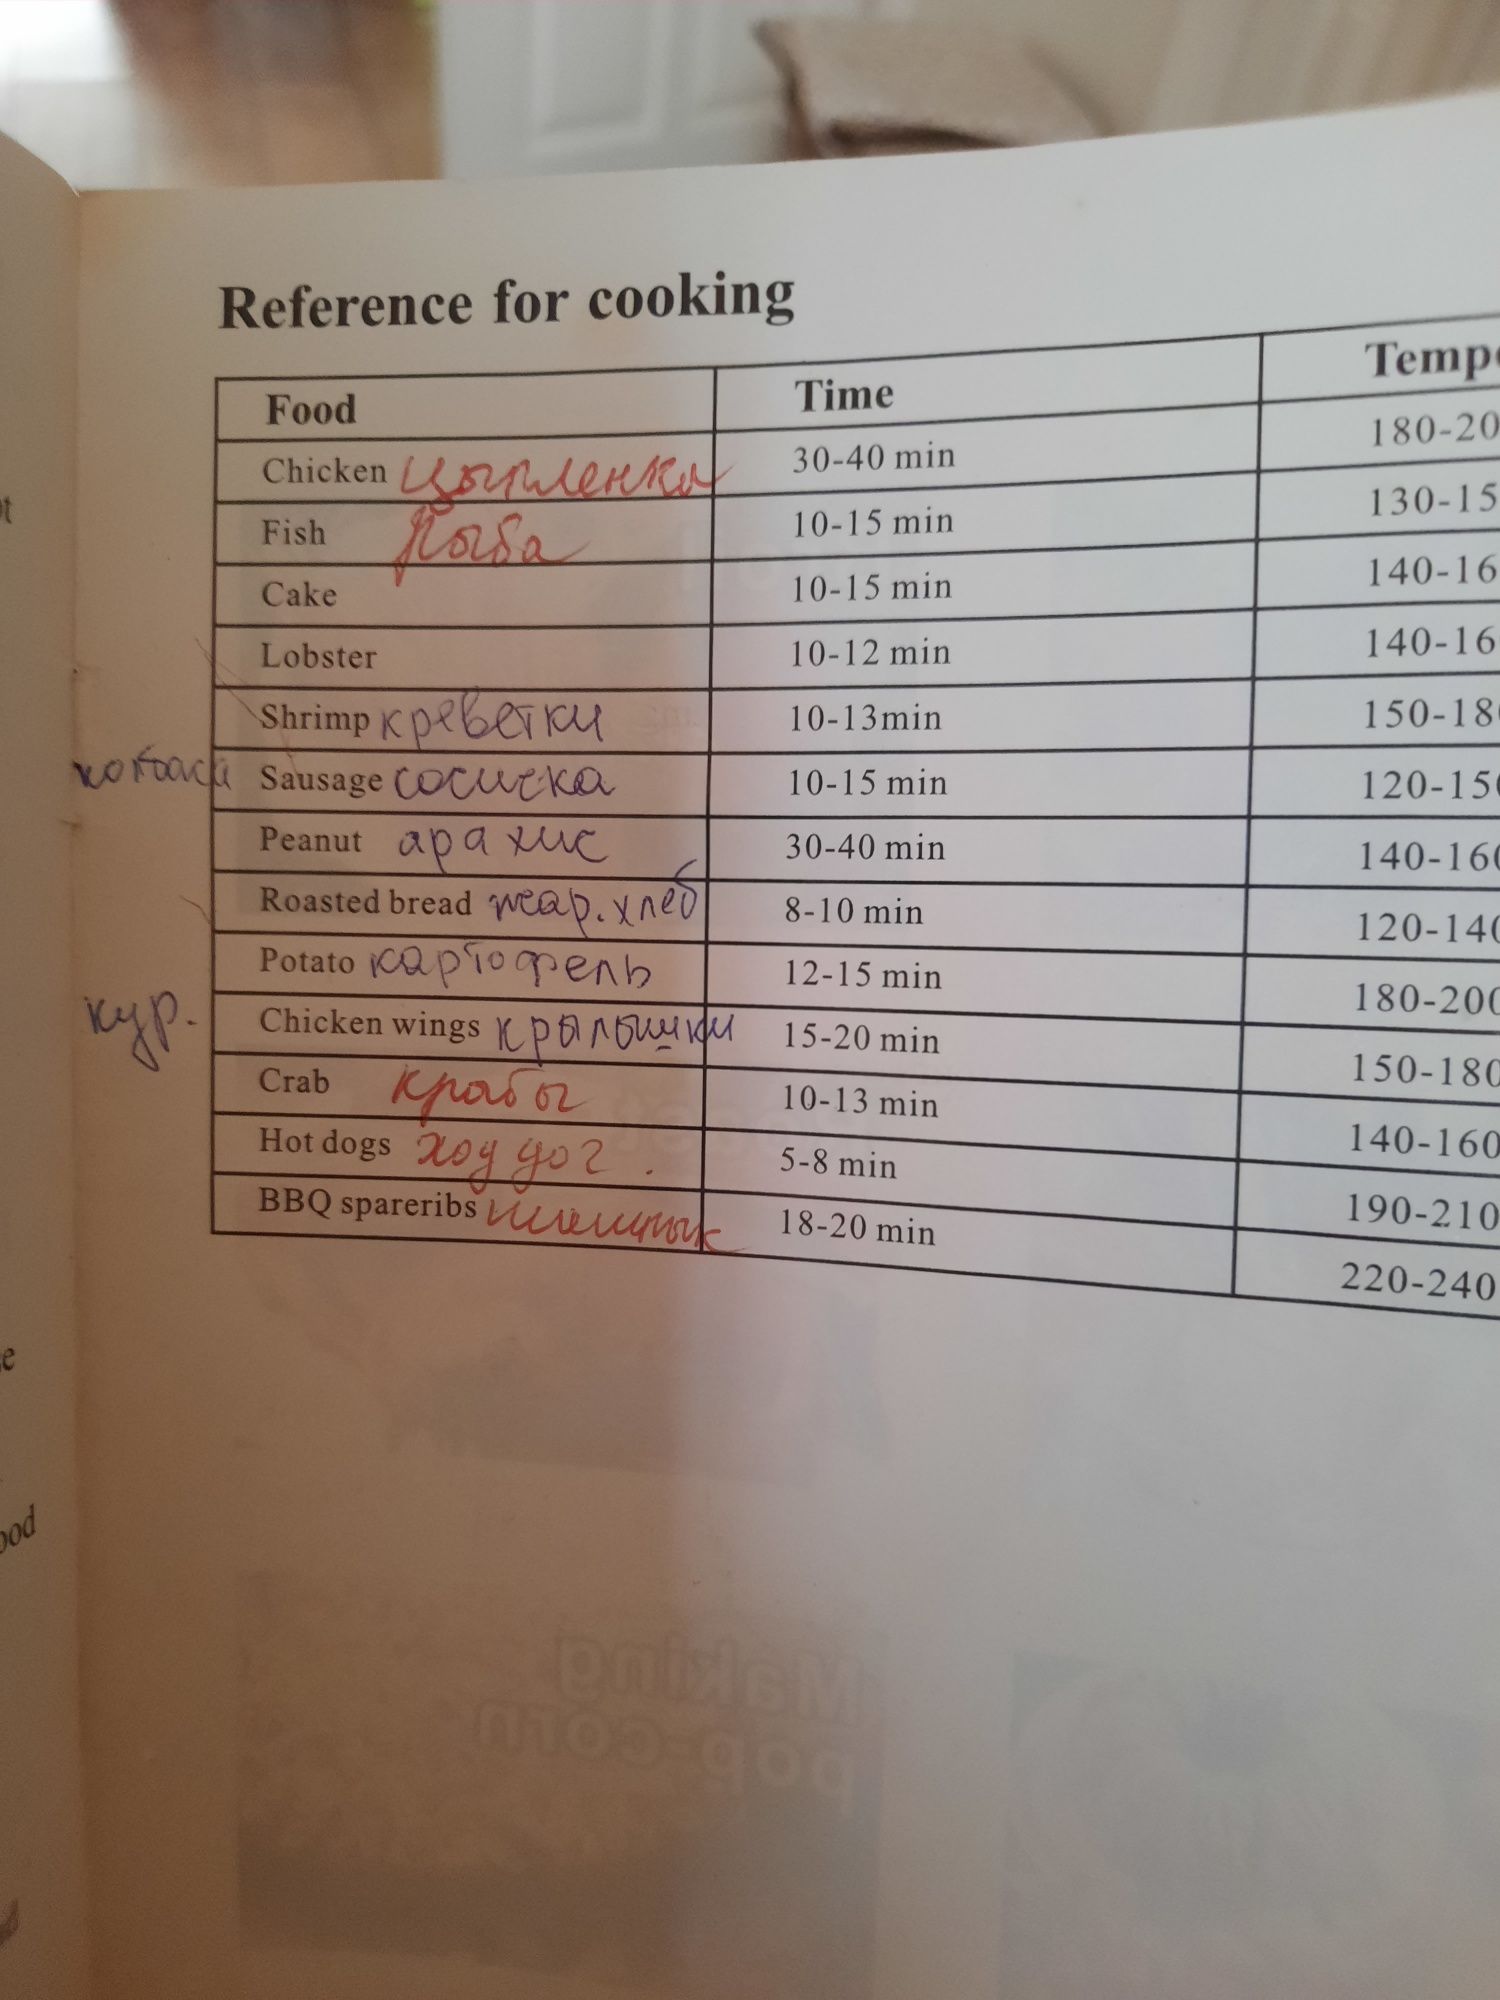 Reference for cooking
Food Time Tempe
Chicken цыпленка 30-40 min 180-20
Fish Рыба 10-15 min 130-15
Cake 10-15 min 140-16
Lobster 10-12 min 140-16
Shrimp креветки 10-13min 150-18
колбаса Sausage сосиска 10-15 min 120-150
Peanut арахис 30-40 min 140-160
Roasted bread жар. хлеб 8-10 min 120-140
Potato картофель 12-15 min 180-200
кур. Chicken wings крылышки 15-20 min 150-180
Crab крабы 10-13 min 140-160
Hot dogs ход дог. 5-8 min 190-210
BBQ spareribs 18-20 min 220-240
ood
Making
pop-corn